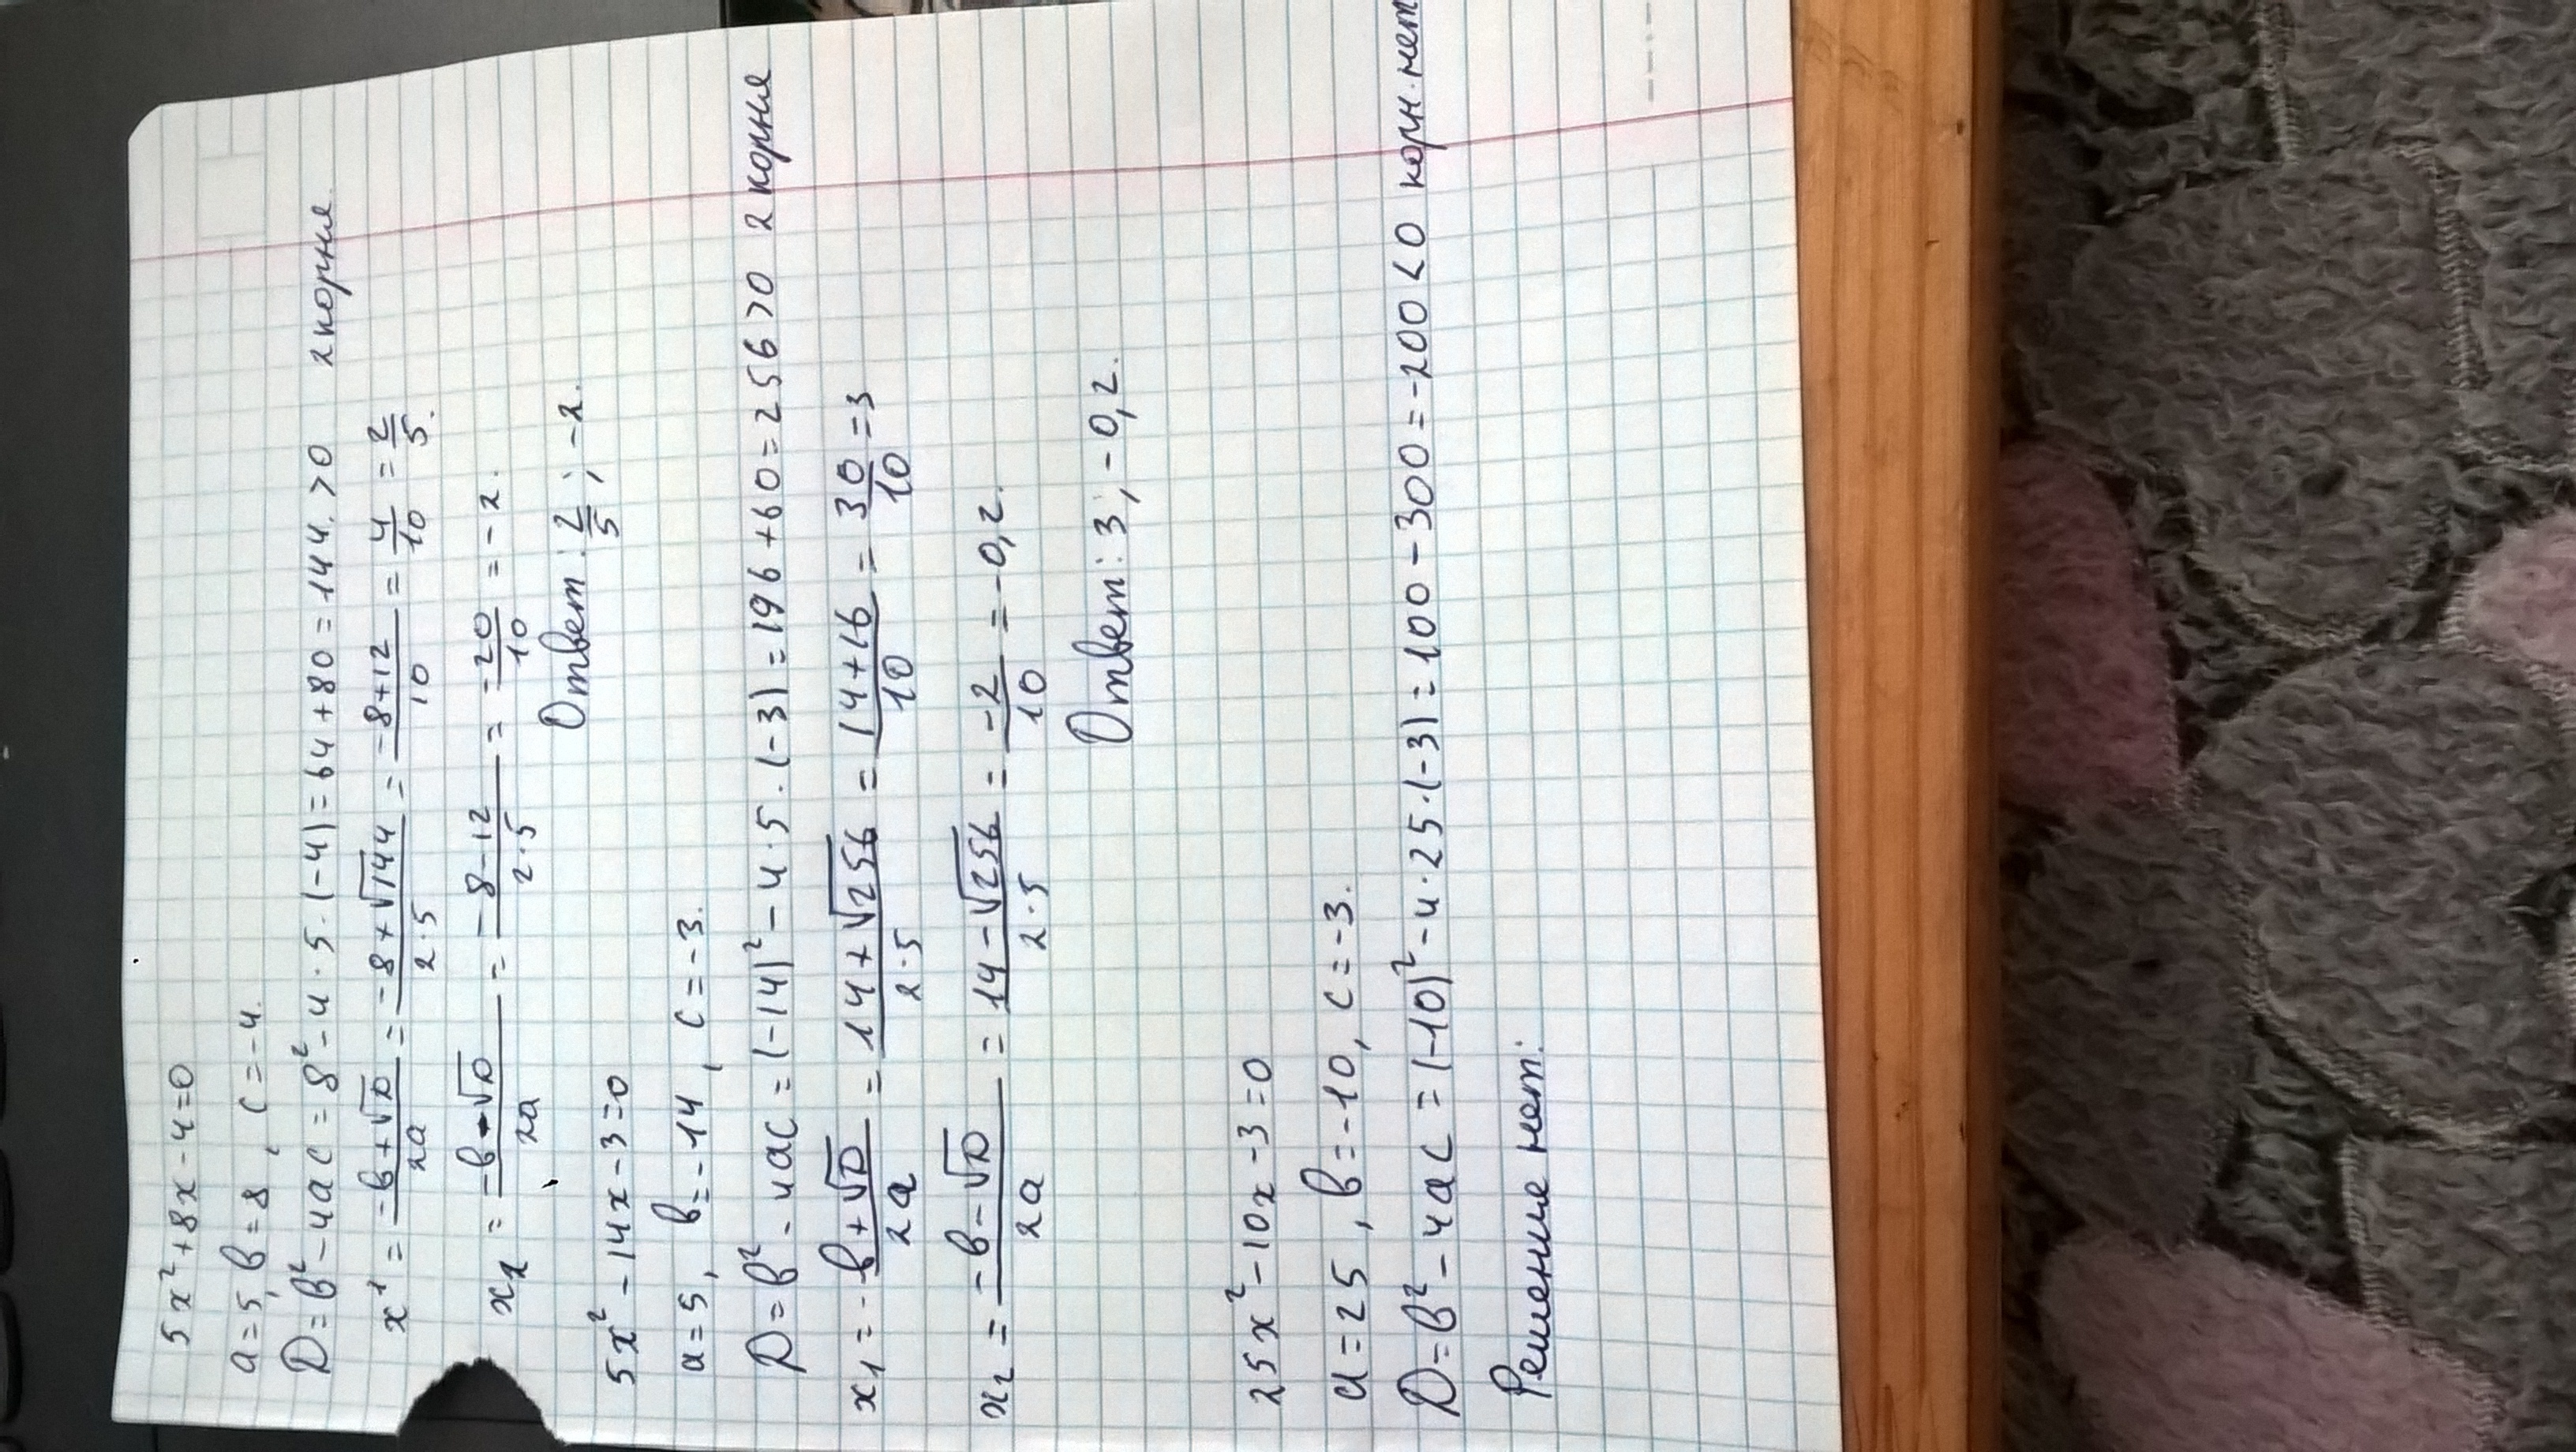 5x²+8x-4=0
a=5, в=8, c=-4.
D=в²-4ac=8²-4·5·(-4)=64+80=144.>0 2 корня.
x¹=(-в+√D)/2a=(-8+√144)/2·5=(-8+12)/10=4/10=2/5.
x₂=(-в-√D)/2a=(-8-12)/2·5=-20/10=-2.
Ответ: 2/5; -2.
5x²-14x-3=0
a=5, в=-14, c=-3.
D=в²-4ac=(-14)²-4·5·(-3)=196+60=256>0 2 корня
x₁=(-в+√D)/2a=(14+√256)/2·5=(14+16)/10=30/10=3
x₂=(-в-√D)/2a=(14-√256)/2·5=-2/10=-0,2.
Ответ: 3; -0,2.
25x²-10x-3=0
a=25, в=-10, c=-3.
D=в²-4ac=(-10)²-4·25·(-3)=100-300=-200<0 корн. нет
Решение нет.